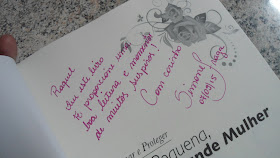 Raquel
Que este livro
te proporcione uma
boa leitura e momentos
de muitos suspiros!
Com carinho
Simoni
09/09/15
ar e Proteger
Pequena,
ande Mulher